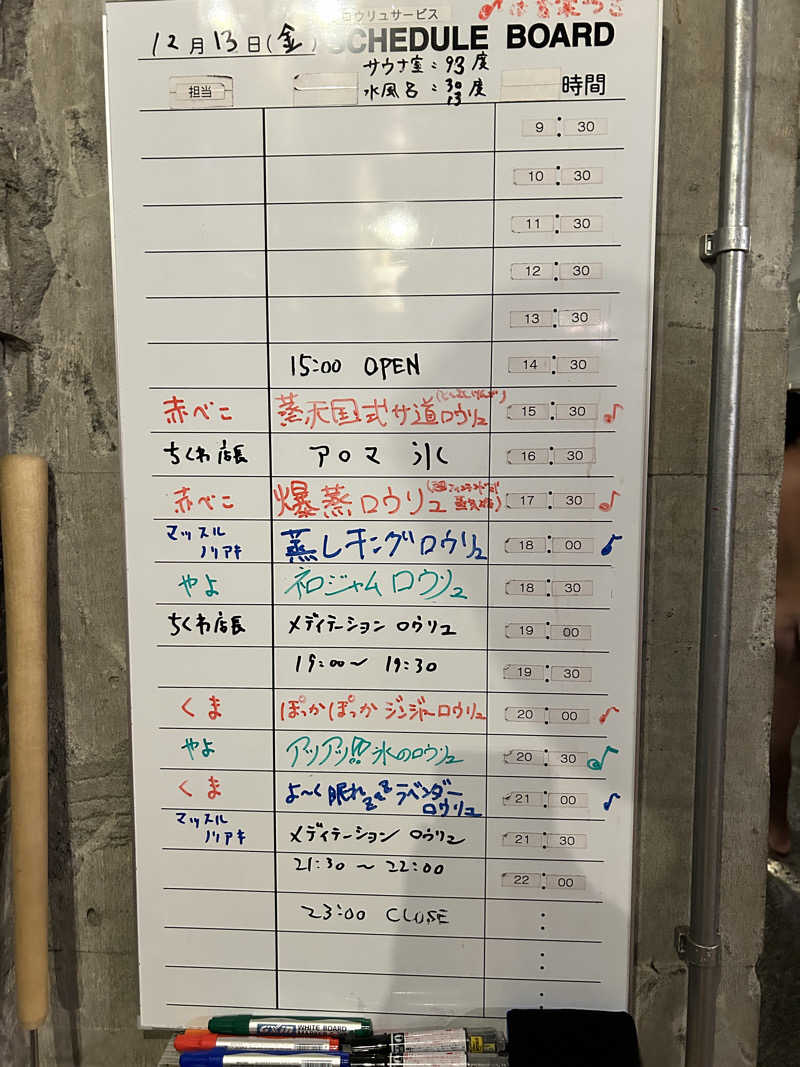 ロウリュサービス
12月13日(金) SCHEDULE BOARD
サウナ室:93度
水風呂:30 13度
担当 時間
9:30
10:30
11:30
12:30
13:30
15:00 OPEN 14:30
赤べこ 蒸天国式サ道ロウリュ 15:30
ちくわ店長 アロマ氷 16:30
赤べこ 爆蒸ロウリュ 17:30
マッスルノリアキ 蒸しキングロウリュ 18:00
やよ ネロジャムロウリュ 18:30
ちくわ店長 メディテーションロウリュ 19:00
19:00〜19:30 19:30
くま ぽっかぽっかジンジャーロウリュ 20:00
やよ アツアツ!!氷のロウリュ 20:30
くま よ〜く眠れzzzラベンダーロウリュ 21:00
マッスルノリアキ メディテーションロウリュ 21:30
21:30〜22:00 22:00
23:00 CLOSE
WHITE BOARD
MARKER